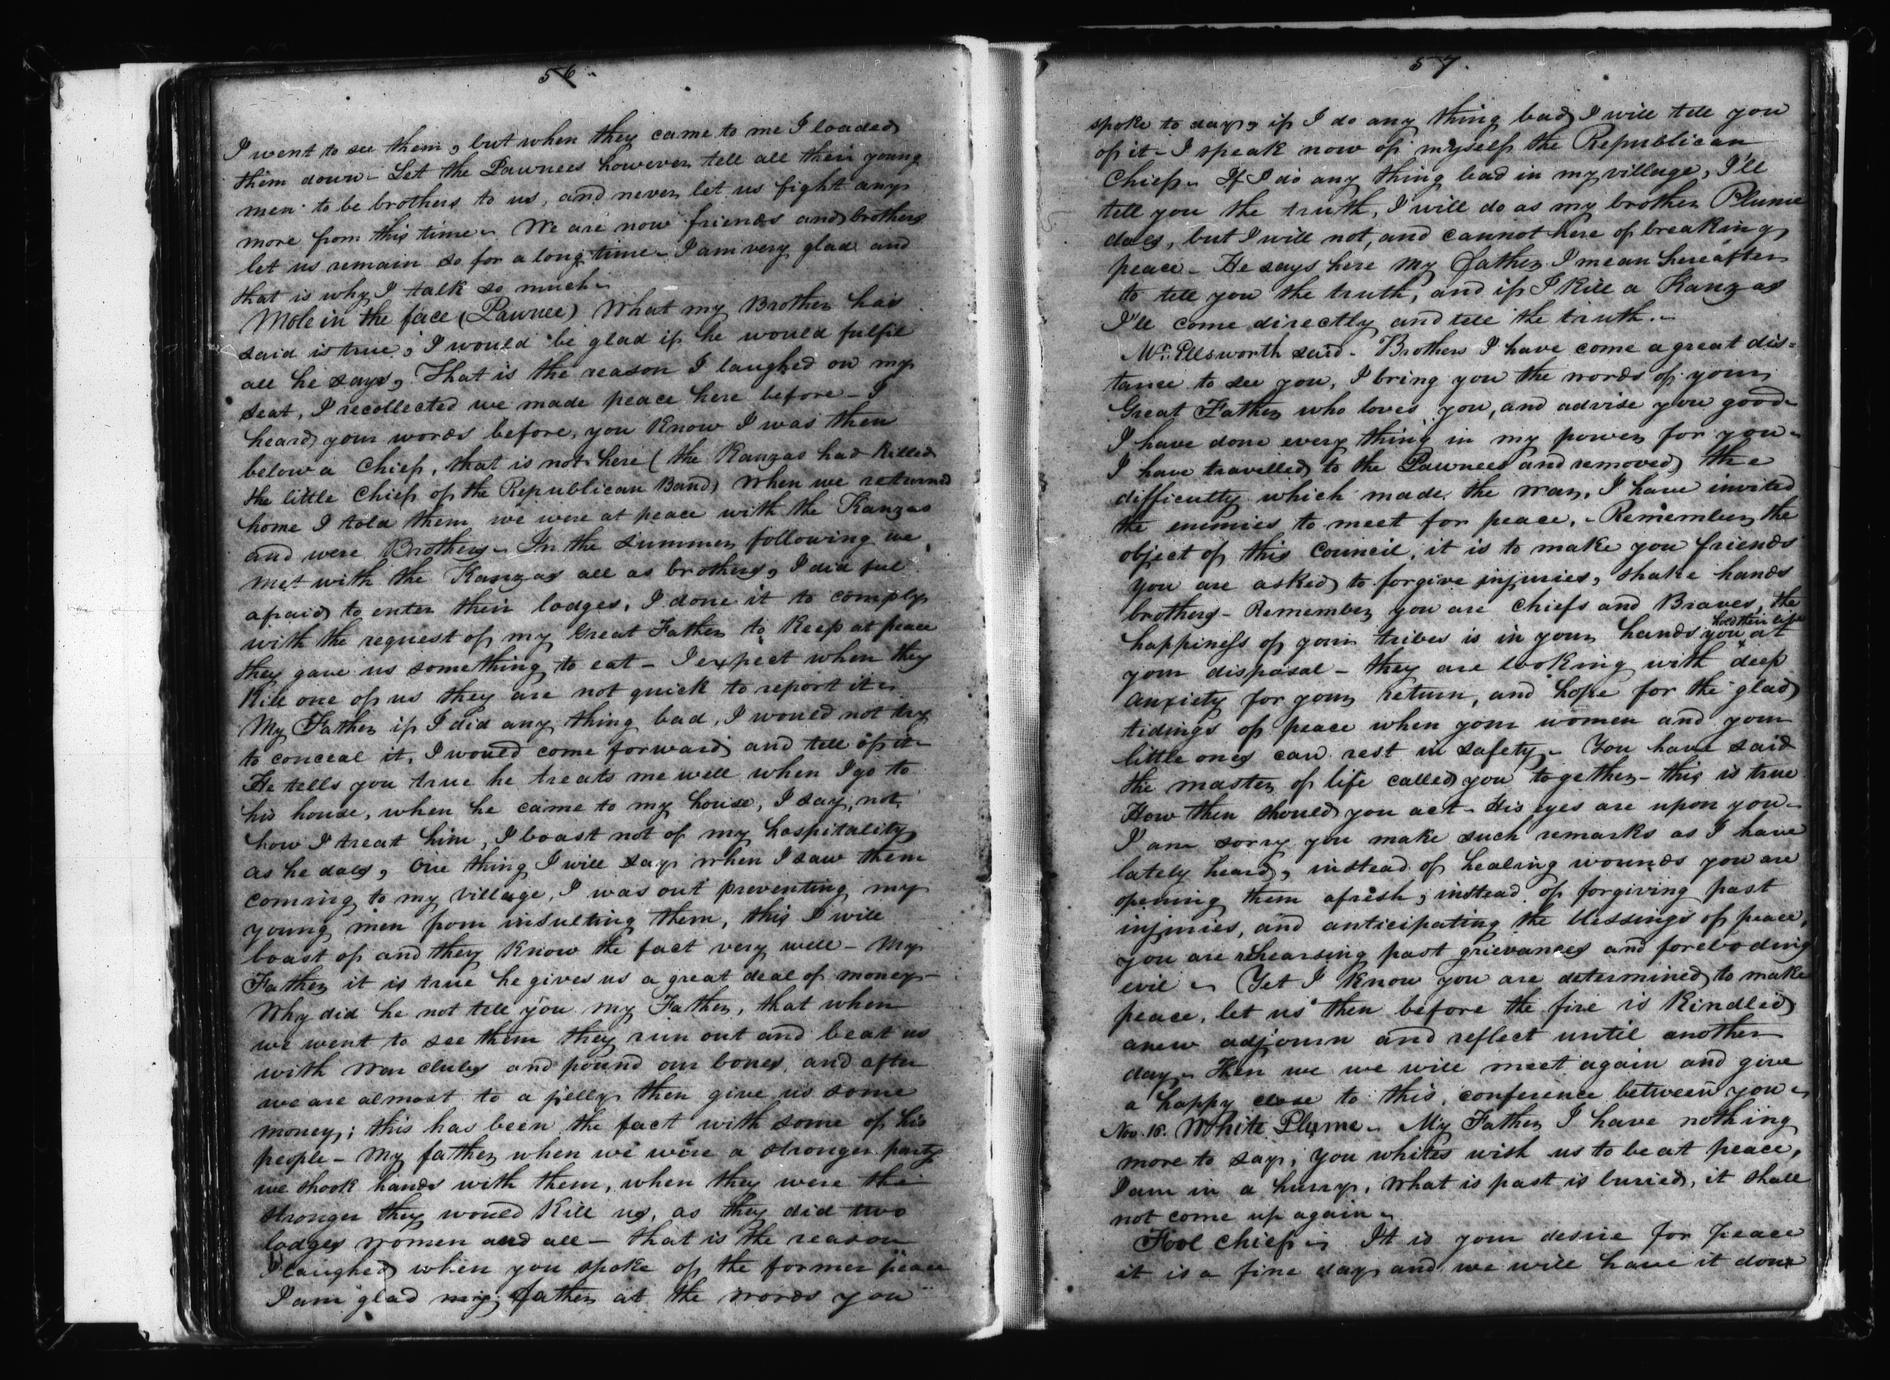 56.
I went to see them, but when they came to me I loaded
them down - Let the Pawnees however tell all their young
men to be brothers to us, and never let us fight any
more from this time - We are now friends and brothers
let us remain so for a long time - I am very glad and
that is why I talk so much -
Mole in the face (Pawnee) What my Brother has
said is true, I would be glad if he would fulfil
all he says, That is the reason I laughed on my
seat, I recollected we made peace here before - I
heard your words before, you know I was then
below a Chief, that is not here (the Kanzas had killed
the little Chief of the Republican Band) When we returned
home I told them we were at peace with the Kanzas
and were Brothers - In the summer following we
met with the Kanzas all as brothers, I did feel
afraid to enter their lodges, I done it to comply
with the request of my Great Father to keep at peace
they gave us something to eat - I expect when they
Kill one of us they are not quick to report it -
My Father if I did any thing bad, I would not try
to conceal it, I would come forward and tell of it -
He tells you true he treats me well when I go to
his house, when he came to my house, I say not
how I treat him, I boast not of my hospitality
as he does, One thing I will say when I saw them
coming to my village, I was out preventing my
young men from insulting them, this I will
boast of and they know the fact very well - My
Father it is true he gives us a great deal of money -
Why did he not tell you my Father, that when
we went to see them they run out and beat us
with war clubs and pound our bones, and after
we are almost to a jelly then give us some
money; this has been the fact with some of his
people - My father when we were a stronger party
we shook hands with them, when they were the
stronger they would kill us, as they did two
lodges women and all - that is the reason
I laughed when you spoke of the former peace
I am glad my father at the words you
57.
spoke to day, if I do any thing bad I will tell you
of it - I speak now of myself the Republican
Chief - If I do any thing bad in my village, I'll
tell you the truth, I will do as my brother Plume
does, but I will not, and cannot here of breaking
peace - He says here My father I mean hereafter
to tell you the truth, and if I kill a Kanzas
I'll come directly and tell the truth. -
Mr. Ellsworth said - Brothers I have come a great dis=
tance to see you, I bring you the words of your
Great Father who loves you, and advise you good -
I have done every thing in my power for you -
I have travelled to the Pawnees and removed the
difficulty which made the war, I have invited
the enemies to meet for peace, - Remember the
object of this Council, it is to make you friends
you are asked to forgive injuries, shake hands
brothers - Remember you are Chiefs and Braves, the
happiness of your tribes is in your hands you hold their life at
your disposal - they are looking with deep
anxiety for your return, and hope for the glad
tidings of peace when your women and your
little ones can rest in safety - You have said
the master of life called you together - this is true
How then should you act - His eyes are upon you -
I am sorry you make such remarks as I have
lately heard, instead of healing wounds you are
opening them afresh, instead of forgiving past
injuries, and anticipating the blessings of peace,
you are rehearsing past grievances and foreboding
evil - Yet I know you are determined to make
peace, let us then before the fire is kindled
anew adjourn and reflect until another
day - then we we will meet again and give
a happy close to this conference between you -
Nov. 18. White Plume - My Father I have nothing
more to say, you whites wish us to be at peace,
I am in a hurry, What is past is buried, it shall
not come up again -
Fool Chief - It is your desire for peace
it is a fine day and we will have it done